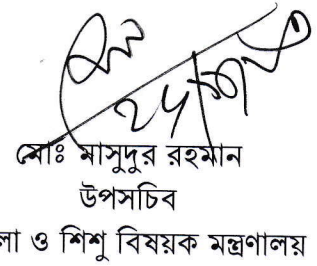 মোঃ মাসুদুর রহমান
উপসচিব
লা ও শিশু বিষয়ক মন্ত্রণালয়